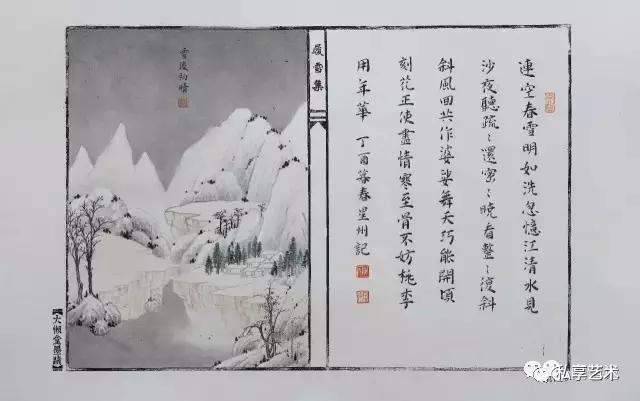 連空春雪明如洗忽憶江清水見
沙夜聽疏〻還密〻曉看整〻復斜
斜風回共作婆娑舞天巧能開頃
刻花正使盡情寒至骨不妨桃李
用年華 丁酉暮春星州記
履雪集
雪後初晴
大懶堂墨蹟
私享艺术